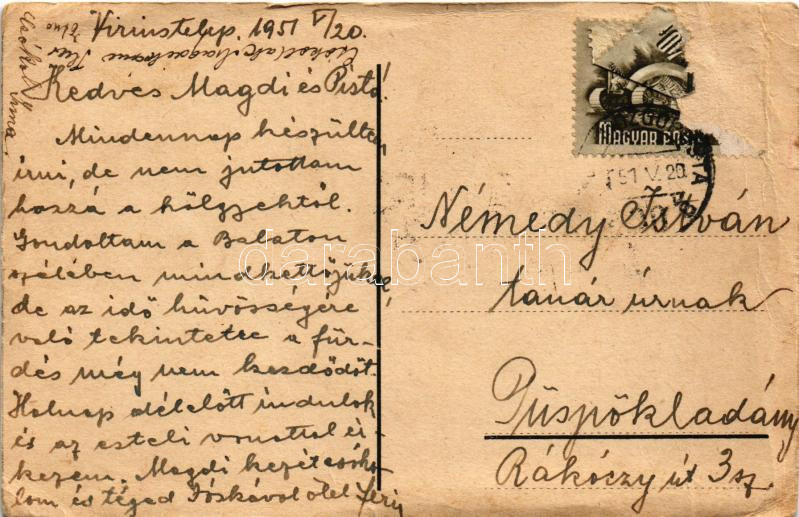 Virinstelep. 1951 V/20.
Kedves Magdi és Pista!
Mindennap készültem
írni, de nem jutottam
hozzá a hölgyektől.
Gondoltam a Balaton
szélében mindkettőjükel,
de az idő hüvösségére
való tekintettel a für-
dés még nem kezdődöt.
Holnap délelőtt indulok
és az esteli vonattal ér-
kezem. Magdi kezét csóko-
lom és téged Jóskával ölel Feri
Csókol
Irma
MAGYAR POSTA
MOZGÓPOSTA
51 V. 20
Némedy István
tanár úrnak
Püspökladány
Rákóczy út 3 sz.
darabanth